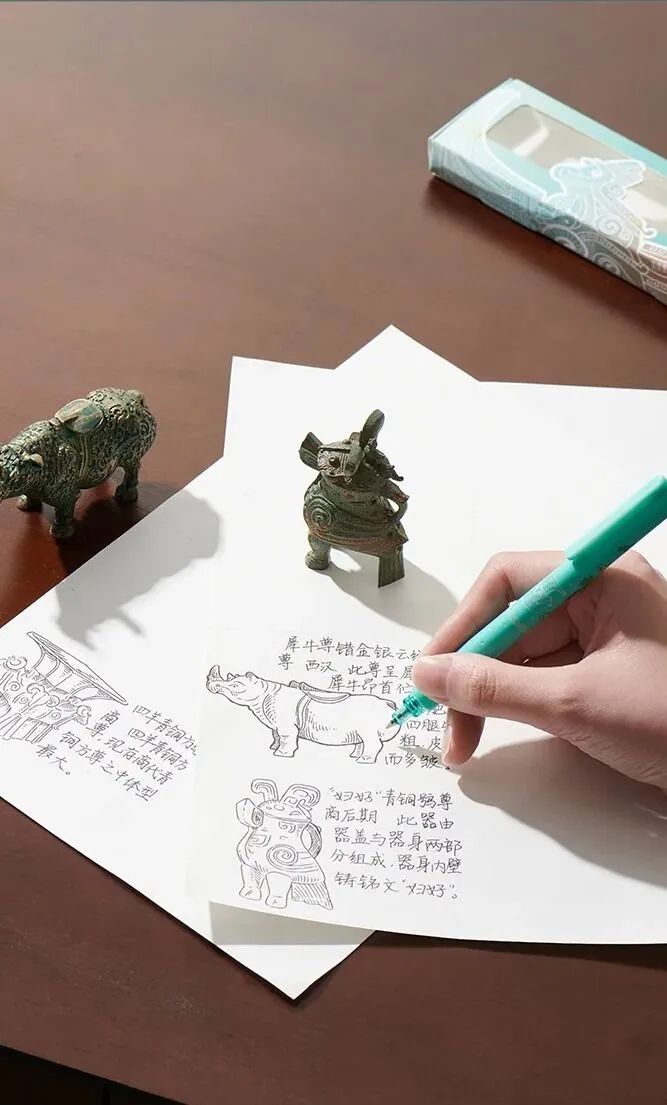 犀牛尊错金银云纹
尊 西汉 此尊呈犀
犀牛昂首位
四腿
粗 皮
而多皱
四羊青铜方
商 四羊青铜方
尊 现存商代青
铜方尊之中体型
最大。
"妇好"青铜鸮尊
商后期 此器由
器盖与器身两部
分组成,器身内壁
铸铭文"妇好"。